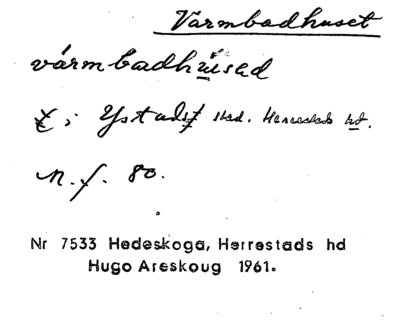 Varmbadhuset
vármbadhúisəd
i Ystads stad. Herrestads hd.
M. f. 80.
Nr 7533 Hedeskoga, Herrestads hd
Hugo Areskoug 1961.